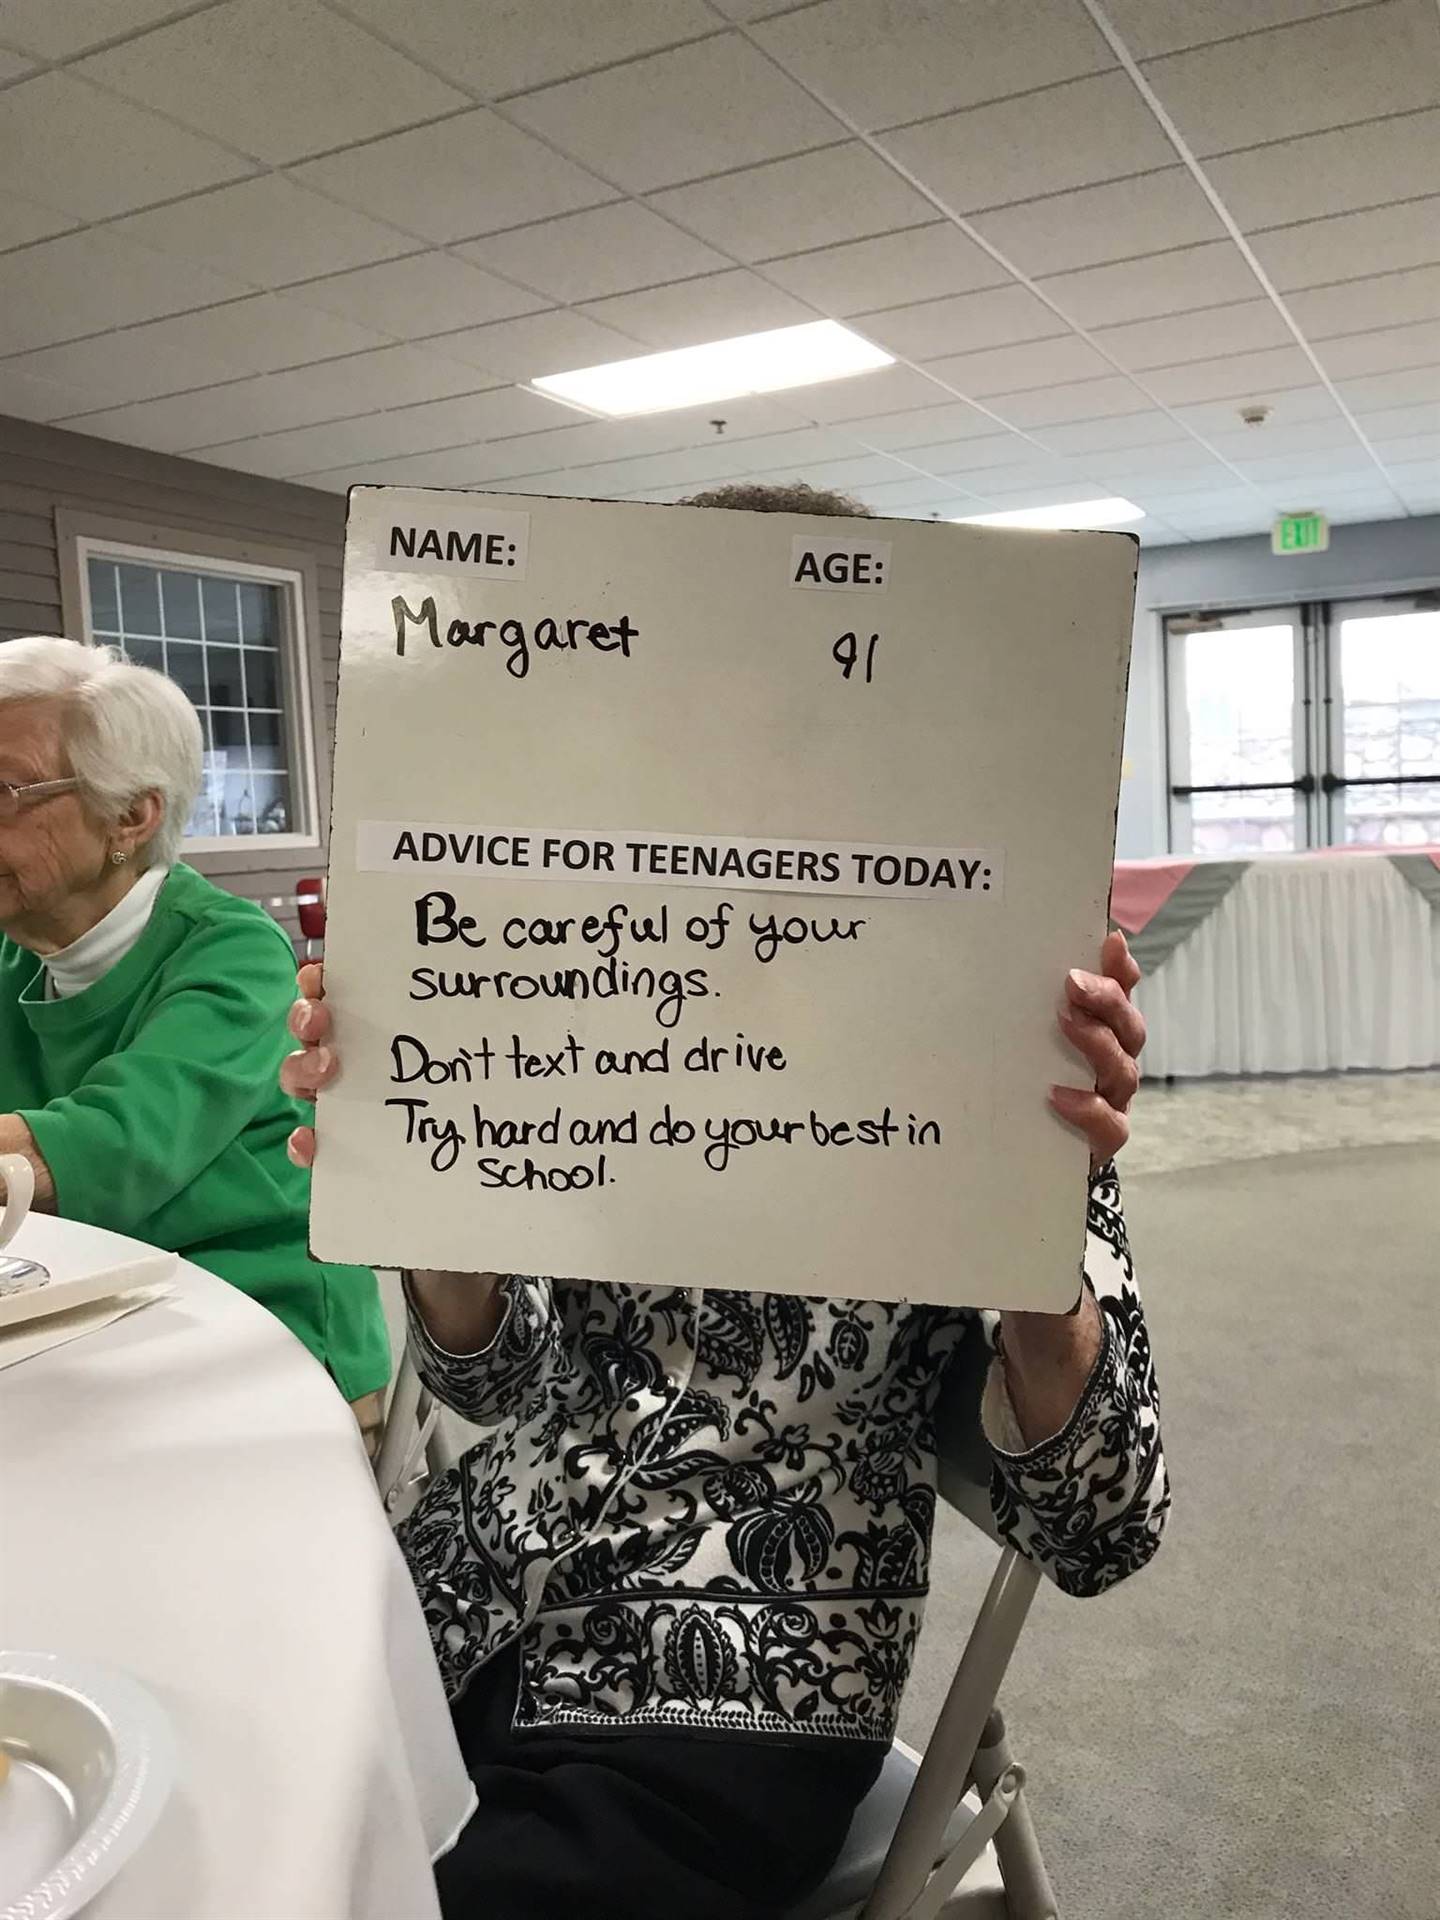 EXIT
NAME: AGE:
Margaret 91
ADVICE FOR TEENAGERS TODAY:
Be careful of your
surroundings.
Don't text and drive
Try hard and do your best in
school.